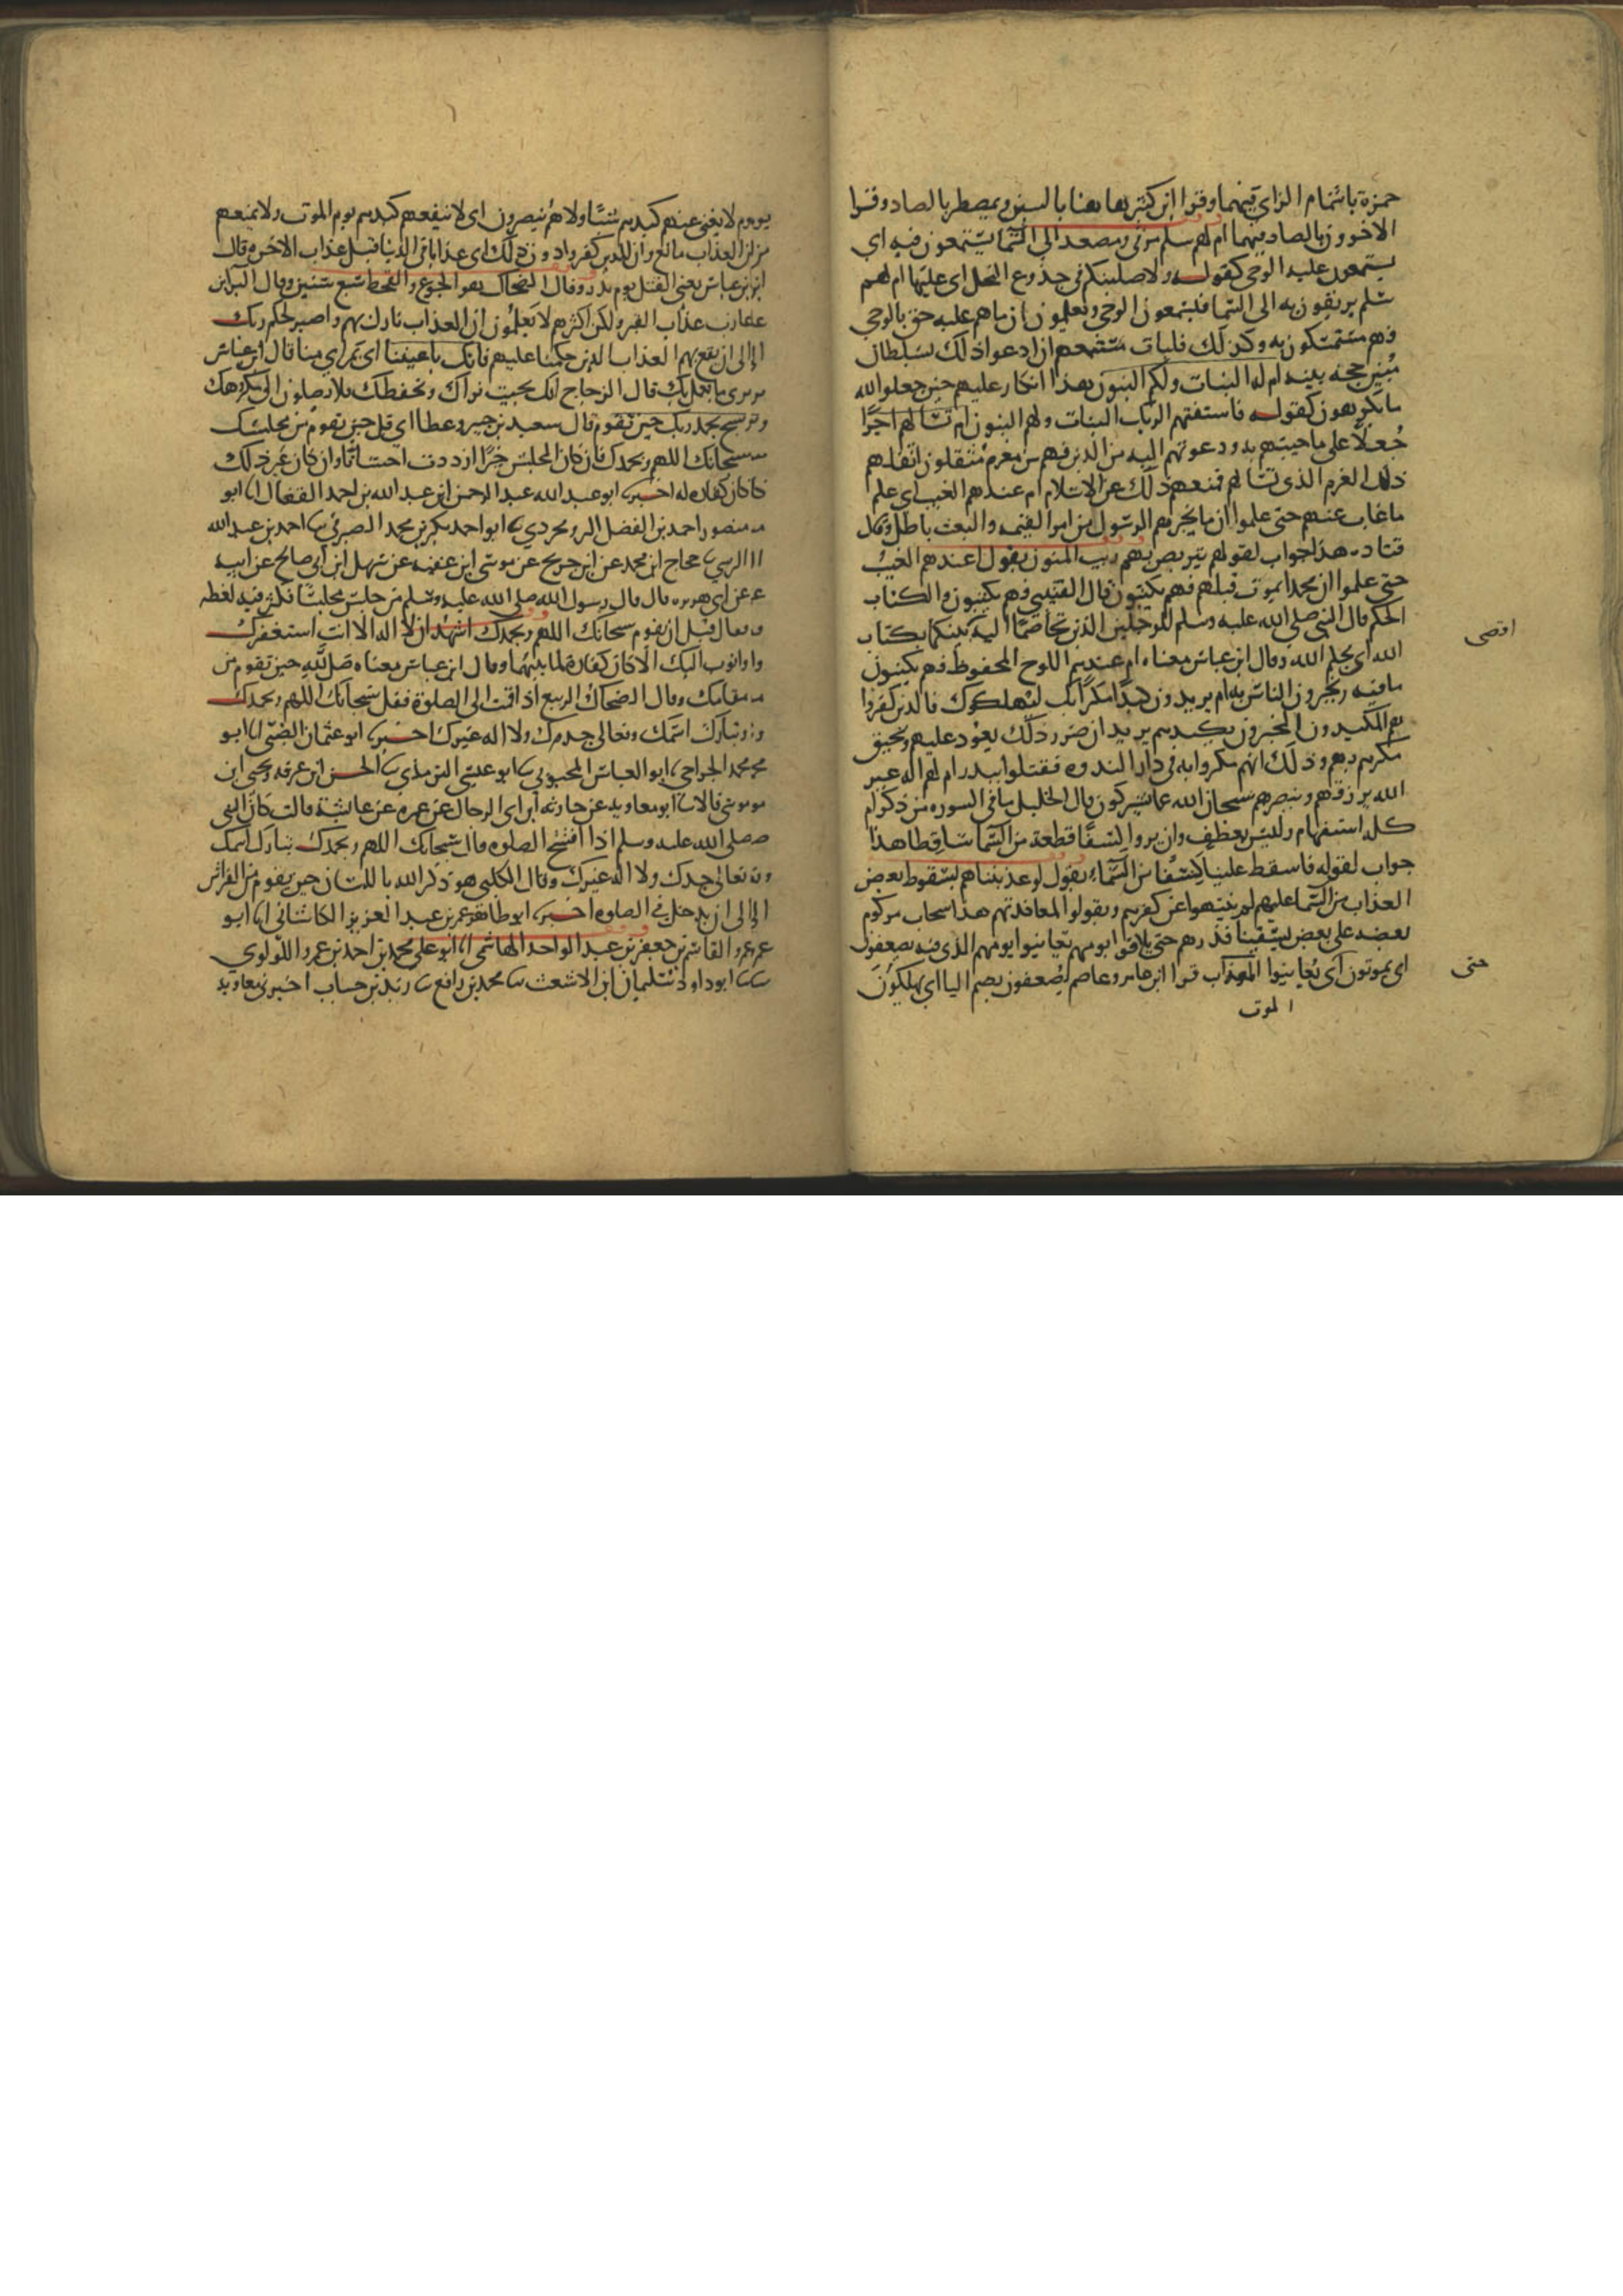 حمزة باشمام الزاي فيهما وقرا ابن كثير هاهنا بالسين وبمصيطر بالصاد وقرا
الاخرون بالصاد فيهما ام لهم سلم مرقى ومصعد الى السما يستمعون فيه اي
يستمعون عليه الوحي كقوله ولاصلبنكم في جذوع النخل اي عليها ام لهم
سلم يرتقون به الى السما فيستمعون الوحي ويعلمون ان ما هم عليه حق بالوحي
فهم مستمسكون به وكذلك فليات مستمعهم ان ادعوا ذلك بسلطان
مبين حجة بينة ام له البنات ولكم البنون هذا انكار عليهم حين جعلوا لله
ما يكرهون كقوله فاستفتهم الربك البنات ولهم البنون ام تسالهم اجرا
جعلا على ما جيتهم به ودعوتهم اليه من الدين فهم من مغرم مثقلون اثقلهم
ذلك الغرم الذي تسالهم فمنعهم ذلك عن الاسلام ام عندهم الغيب اي علم
ما غاب عنهم حتى علموا ان ما يخبرهم الرسول من امر القيمة والبعث باطل وقال
قتادة هذا جواب لقولهم نتربص به ريب المنون يقول اعندهم الغيب
حتى علموا ان محمدا يموت قبلهم فهم يكتبون قال القتيبي فهم يكتبون والكتاب
الحكم قال النبي صلى الله عليه وسلم للرجلين الذين تخاصما اليه بينكما بكتاب
اقضي
الله اي بحكم الله وقال ابن عباس معناه ام عندهم اللوح المحفوظ فهم يكتبون
ما فيه ويخبرون الناس به ام يريدون كيدا مكرا بك ليهلكوك فالذين كفروا
هم المكيدون المجزيون بكيدهم يريد ان ضرر ذلك يعود عليهم ويحيق
مكرهم بهم وذلك انهم مكروا به في دار الندوة فقتلوا ببدر ام لهم اله غير
الله يرزقهم وينصرهم سبحان الله عما يشركون قال الخليل ما في السورة من ذكر ام
كله استفهام وليس بعطف وان يروا كسفا قطعة من السما ساقطا هذا
جواب لقوله فاسقط علينا كسفا من السماء يقول لو عذبناهم بسقوط بعض
العذاب من السما عليهم لم ينتهوا عن كفرهم ويقولوا لمعاندتهم هذا سحاب مركوم
بعضه على بعض يسقينا فذرهم حتى يلاقوا يومهم يعاينوا يومهم الذي فيه يصعقون
اي يموتون اي يعاينوا قرا ابن عامر وعاصم يصعقون بضم اليا اي يهلكون
حتى
الموت
يوم لا يغني عنهم كيدهم شيئا ولا هم ينصرون اي لا ينفعهم كيدهم يوم الموت ولا يمنعهم
من العذاب مانع وان للذين كفروا دون ذلك اي عذابا في الدنيا قبل عذاب الاخرة قال
ابن عباس يعني القتل يوم بدر وقال الضحاك هو الجوع والقحط سبع سنين وقال البرا بن
عازب عذاب القبر ولكن اكثرهم لا يعلمون ان العذاب نازل بهم واصبر لحكم ربك
الى ان يقع بهم العذاب الذي حكمنا عليهم فانك باعيننا اي بمراى منا قال ابن عباس
نرى ما يعمل بك قال الزجاج انك بحيث نراك ونحفظك فلا يصلون الى مكروهك
وسبح بحمد ربك حين تقوم قال سعيد بن جبير وعطا اي قل حين تقوم من مجلسك
سبحانك اللهم وبحمدك فان كان المجلس خيرا ازددت احسانا وان كان غير ذلك
كان كفارة له اخبرنا ابو عبد الله عبد الرحمن ابن عبد الله بن احمد القفال انا ابو
منصور احمد بن الفضل البروجردي نا ابو احمد بكر بن محمد الصيرفي نا احمد بن عبد الله
النرسي نا حجاج ابن محمد عن ابن جريج عن موسى ابن عقبة عن سهيل ابن ابي صالح عن ابيه
عن ابي هريرة قال قال رسول الله صلى الله عليه وسلم من جلس مجلسا فكثر فيه لغطه
فقال قبل ان يقوم سبحانك اللهم وبحمدك اشهد ان لا اله الا انت استغفرك
واتوب اليك الا كان كفارة لما بينهما وقال ابن عباس معناه صل لله حين تقوم من
مقامك وقال الضحاك والربيع اذا قمت الى الصلوة فقل سبحانك اللهم وبحمدك
وتبارك اسمك وتعالى جدك ولا اله غيرك اخبرنا ابو عثمان الضبي انا ابو
محمد الجراحي نا ابو العباس المحبوبي نا ابو عيسى الترمذي نا الحسن ابن عرفة ويحيى ابن
موسى قالا نا ابو معاوية عن حارثة ابن ابي الرجال عن عمرة عن عايشة قالت كان النبي
صلى الله عليه وسلم اذا افتتح الصلوة قال سبحانك اللهم وبحمدك تبارك اسمك
وتعالى جدك ولا اله غيرك وقال الكلبي هو ذكر الله باللسان حين يقوم من الفراش
الى ان يدخل في الصلوة اخبرنا ابو طاهر عمر بن عبد العزيز الكاشاني انا ابو
عمر القاسم بن جعفر بن عبد الواحد الهاشمي انا ابو علي محمد بن احمد بن عمرو اللولوي
نا ابو داود سليمان ابن الاشعث نا محمد بن رافع نا زيد بن حباب اخبرني معاوية